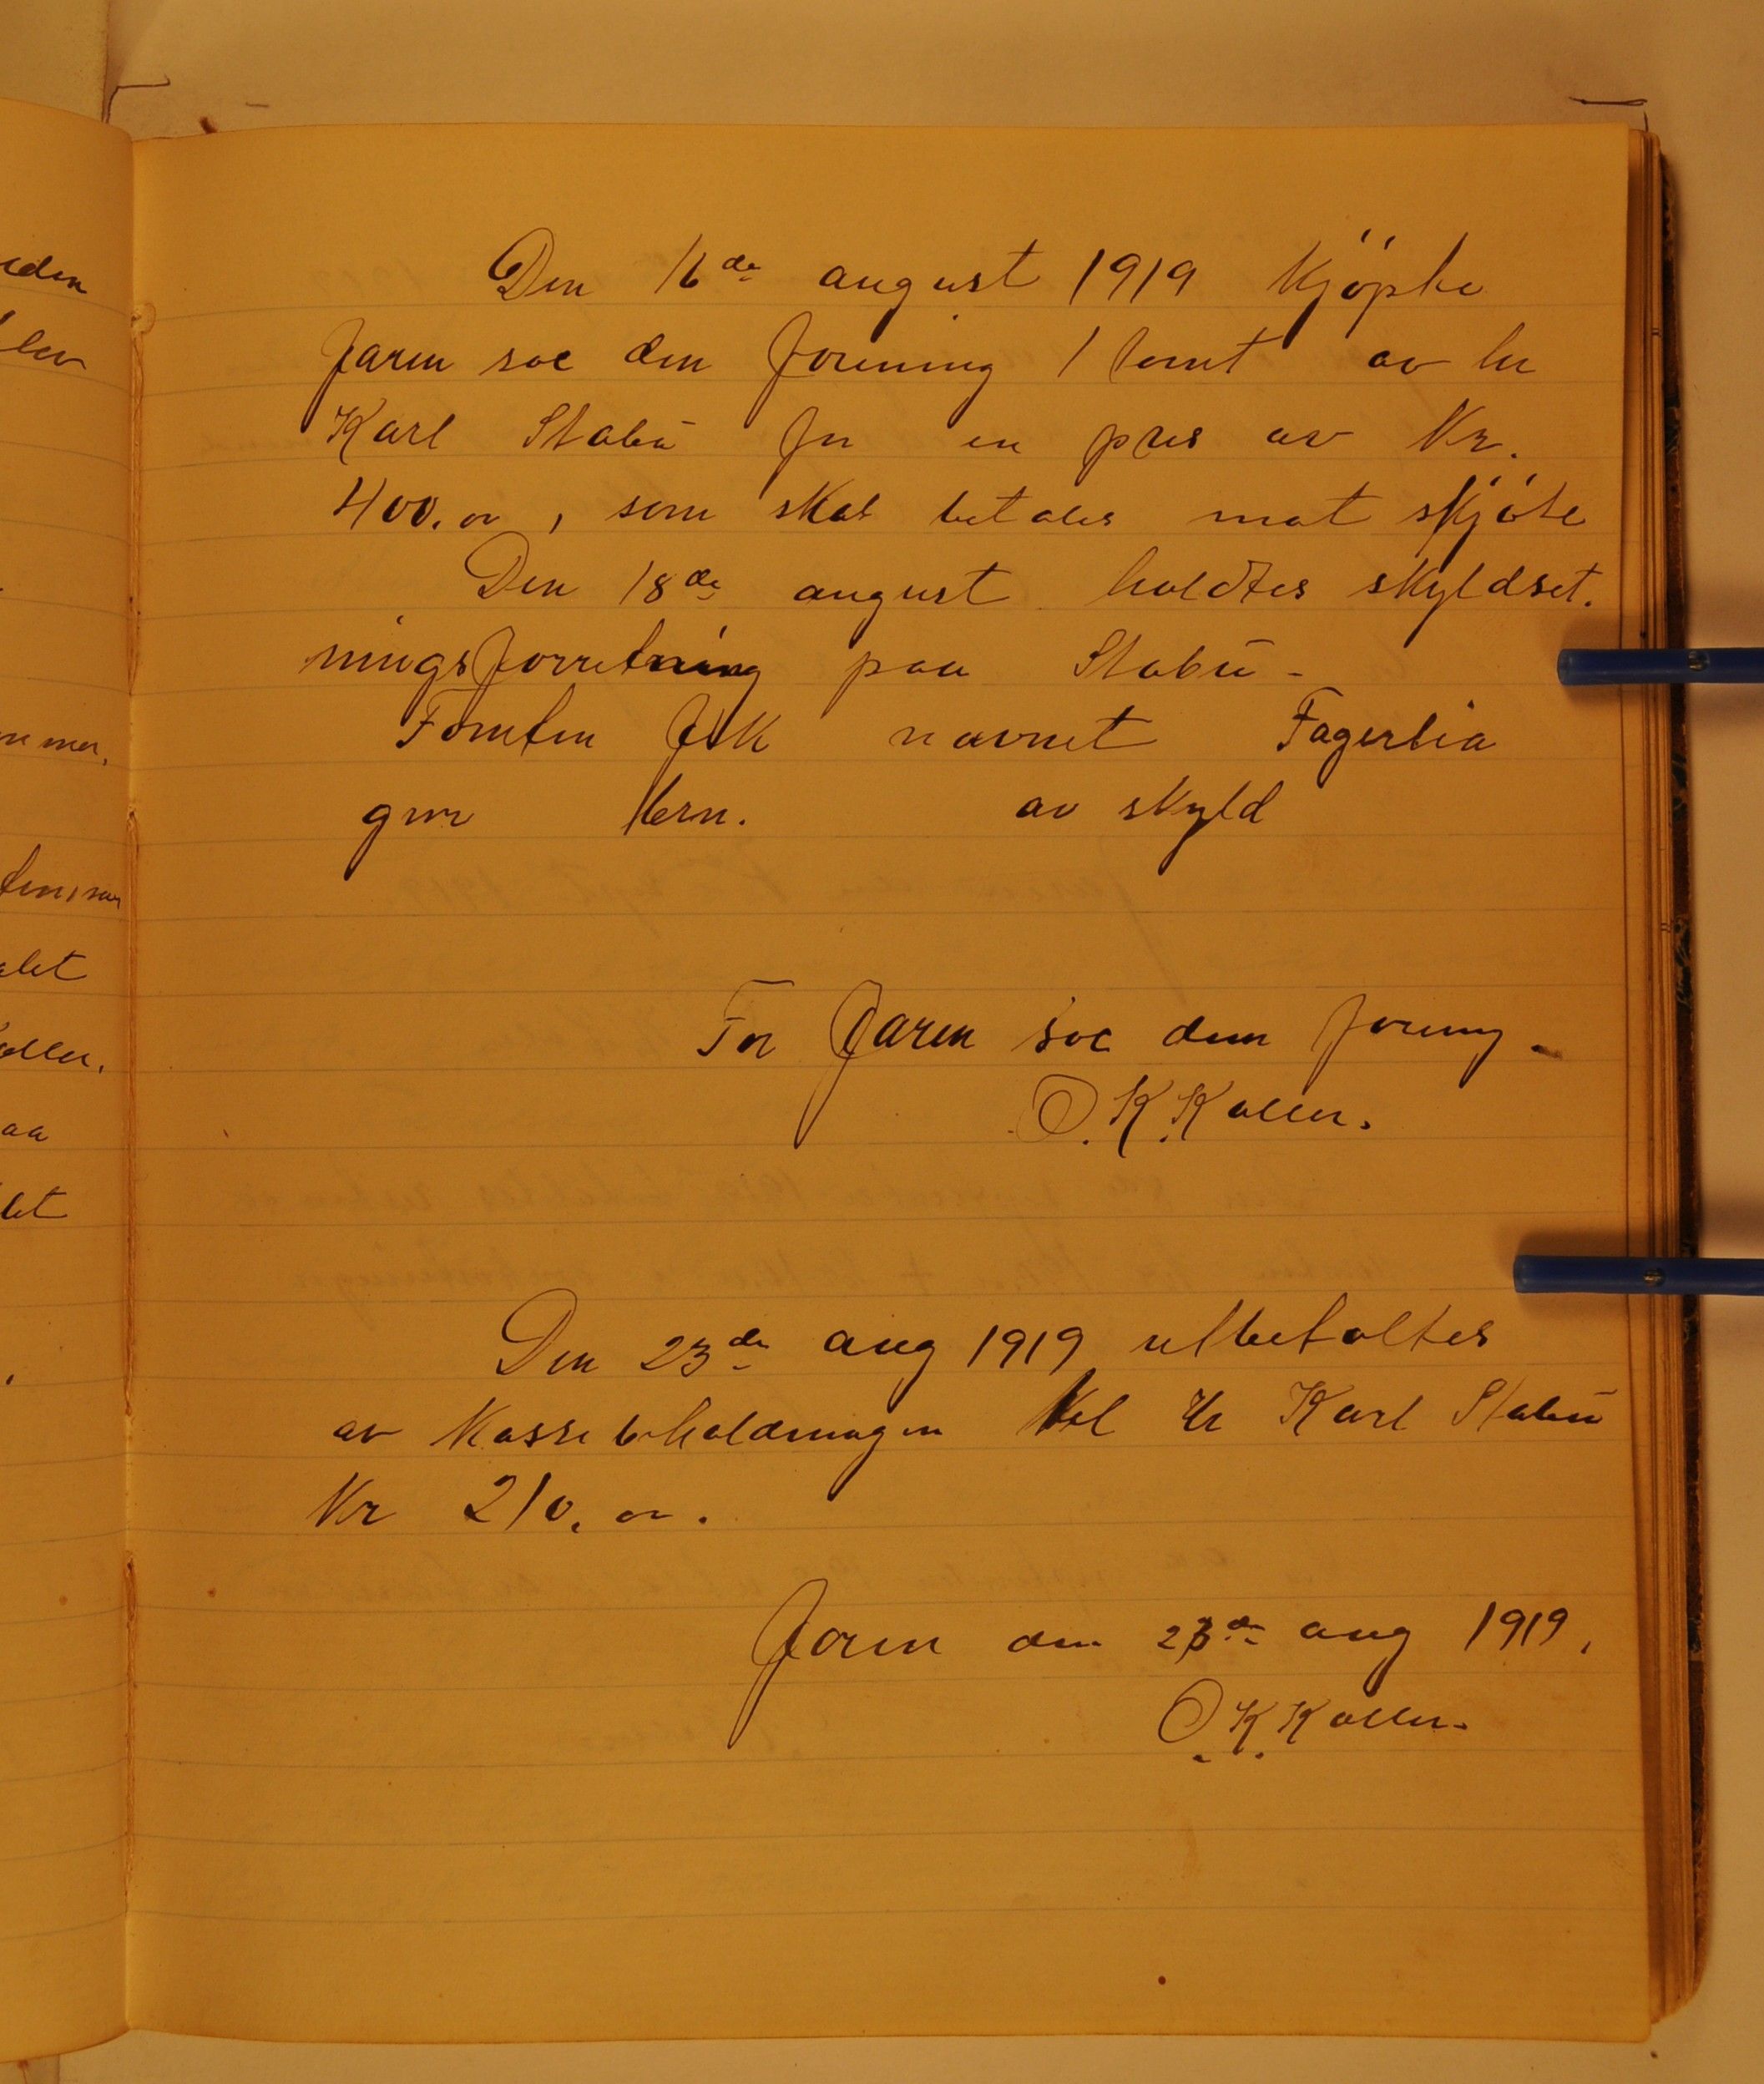 Den 16de august 1919 kjöpte
Jaren soc dem forening 1 tomt av hr
Karl Stabu for en pris av Kr.
400.00, som skal betales mot skjöte
Den 18de august holdtes skyldset.
ningsforretning paa Stabu -
Tomten fik navnet Fagerlia
gnr brn. av skyld
For Jaren soc dem forening -
O. K. Koller.
Den 23de aug 1919 utbetaltes
av Kassebeholdningen til Hr Karl Stabu
Kr 210.00.
Jaren den 23de aug 1919.
O. K. Koller.
eden
blev
mer.
alet
oller.
aa
let